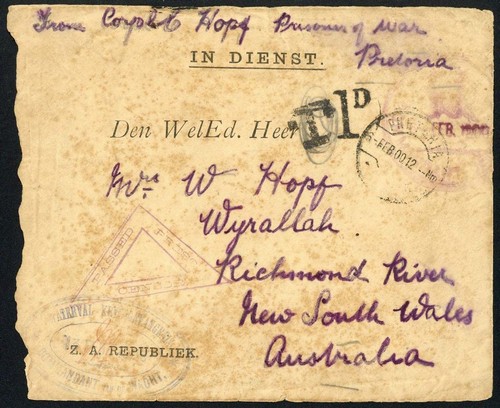 From Corpl Hopf Prisoner of War
Pretoria
IN DIENST.
Den WelEd. Heer
T 1D
FEB. 1900
PRETORIA
FEB 00 12
Mrs W Hopf
Wyrallah
Richmond River
New South Wales
Australia
PASSED PRESS
CEN
Z. A. REPUBLIEK.